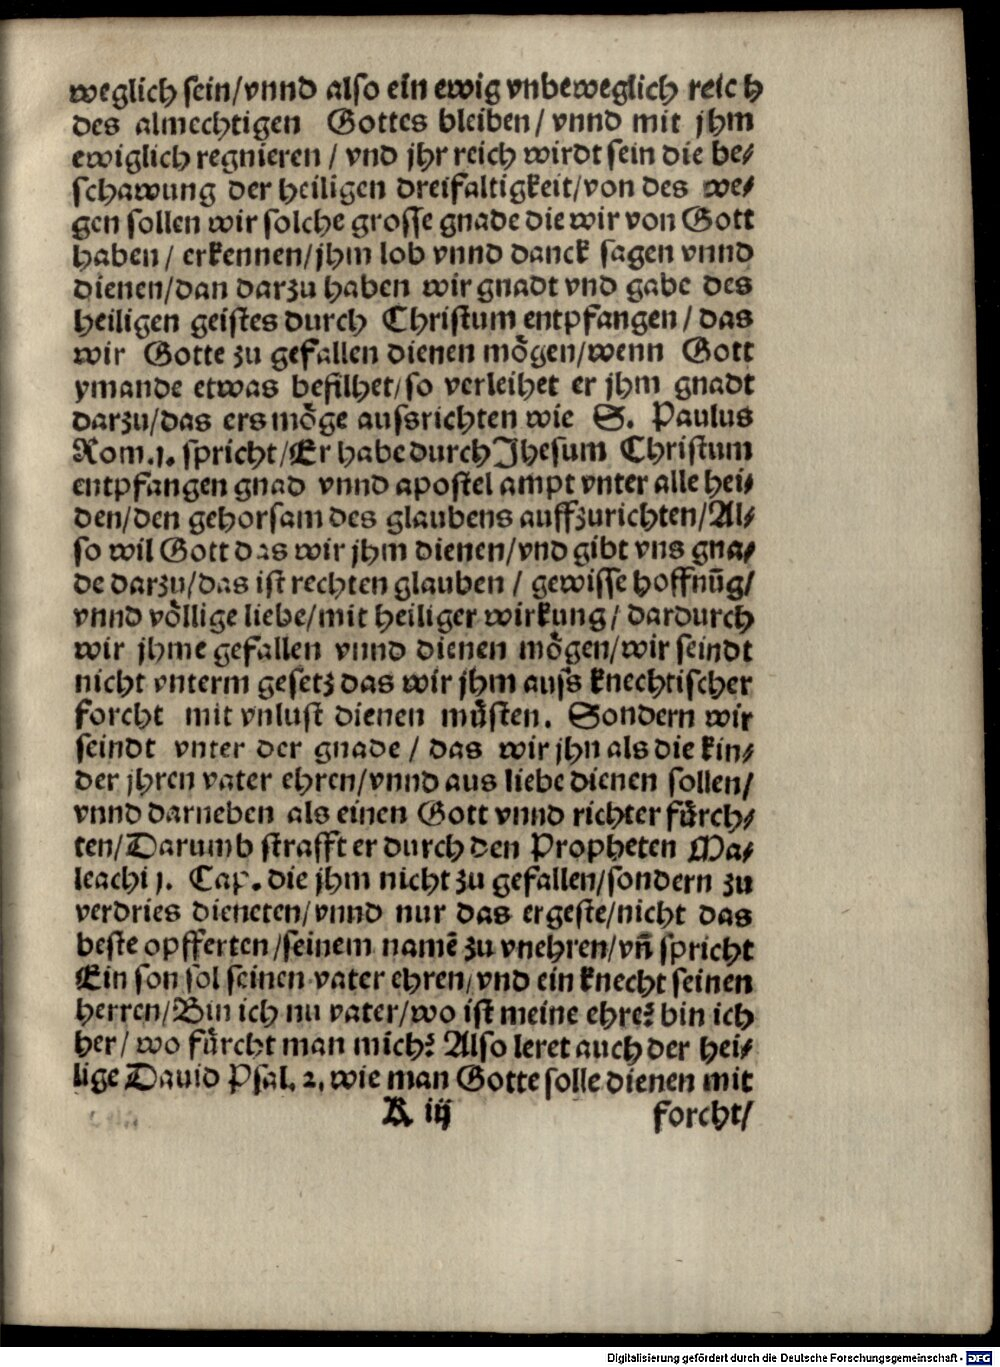 weglich sein/vnnd also ein ewig vnbeweglich reich
des almechtigen Gottes bleiben/ vnnd mit jhm
ewiglich regnieren / vnd jhr reich wirdt sein die be⸗
schawung der heiligen dreifaltigkeit/von des we⸗
gen sollen wir solche grosse gnade die wir von Gott
haben/ erkennen/jhm lob vnnd danck sagen vnnd
dienen/dan darzu haben wir gnadt vnd gabe des
heiligen geistes durch Christum entpfangen/ das
wir Gotte zu gefallen dienen moͤgen/wenn Gott
ymande etwas befilhet/so verleihet er jhm gnadt
darzu/das ers moͤge aussrichten wie S. Paulus
Rom.1. spricht/Er habe durch Jhesum Christum
entpfangen gnad vnnd apostel ampt vnter alle hei⸗
den/den gehorsam des glaubens auffzurichten/Al⸗
so wil Gott das wir jhm dienen/vnd gibt vns gna⸗
de darzu/das ist rechten glauben / gewisse hoffnūg/
vnnd voͤllige liebe/mit heiliger wirkung/ dardurch
wir jhme gefallen vnnd dienen moͤgen/wir seindt
nicht vnterm gesetz das wir jhm auss knechtischer
forcht mit vnlust dienen muͤsten. Sondern wir
seindt vnter der gnade / das wir jhn als die kin⸗
der jhren vater ehren/vnnd aus liebe dienen sollen/
vnnd darneben als einen Gott vnnd richter fuͤrch⸗
ten/Darumb strafft er durch den Propheten Ma⸗
leachi 1. Cap. die jhm nicht zu gefallen/sondern zu
verdries dieneten/vnnd nur das ergeste/nicht das
beste opfferten/seinem namē zu vnehren/vn̄ spricht
Ein son sol seinen vater ehren/vnd ein knecht seinen
herren/Bin ich nu vater/wo ist meine ehre? bin ich
her/ wo fuͤrcht man mich? Also leret auch der hei⸗
lige Dauid Psal. 2. wie man Gotte solle dienen mit
R iij forcht/
Digitalisierung gefördert durch die Deutsche Forschungsgemeinschaft - DFG